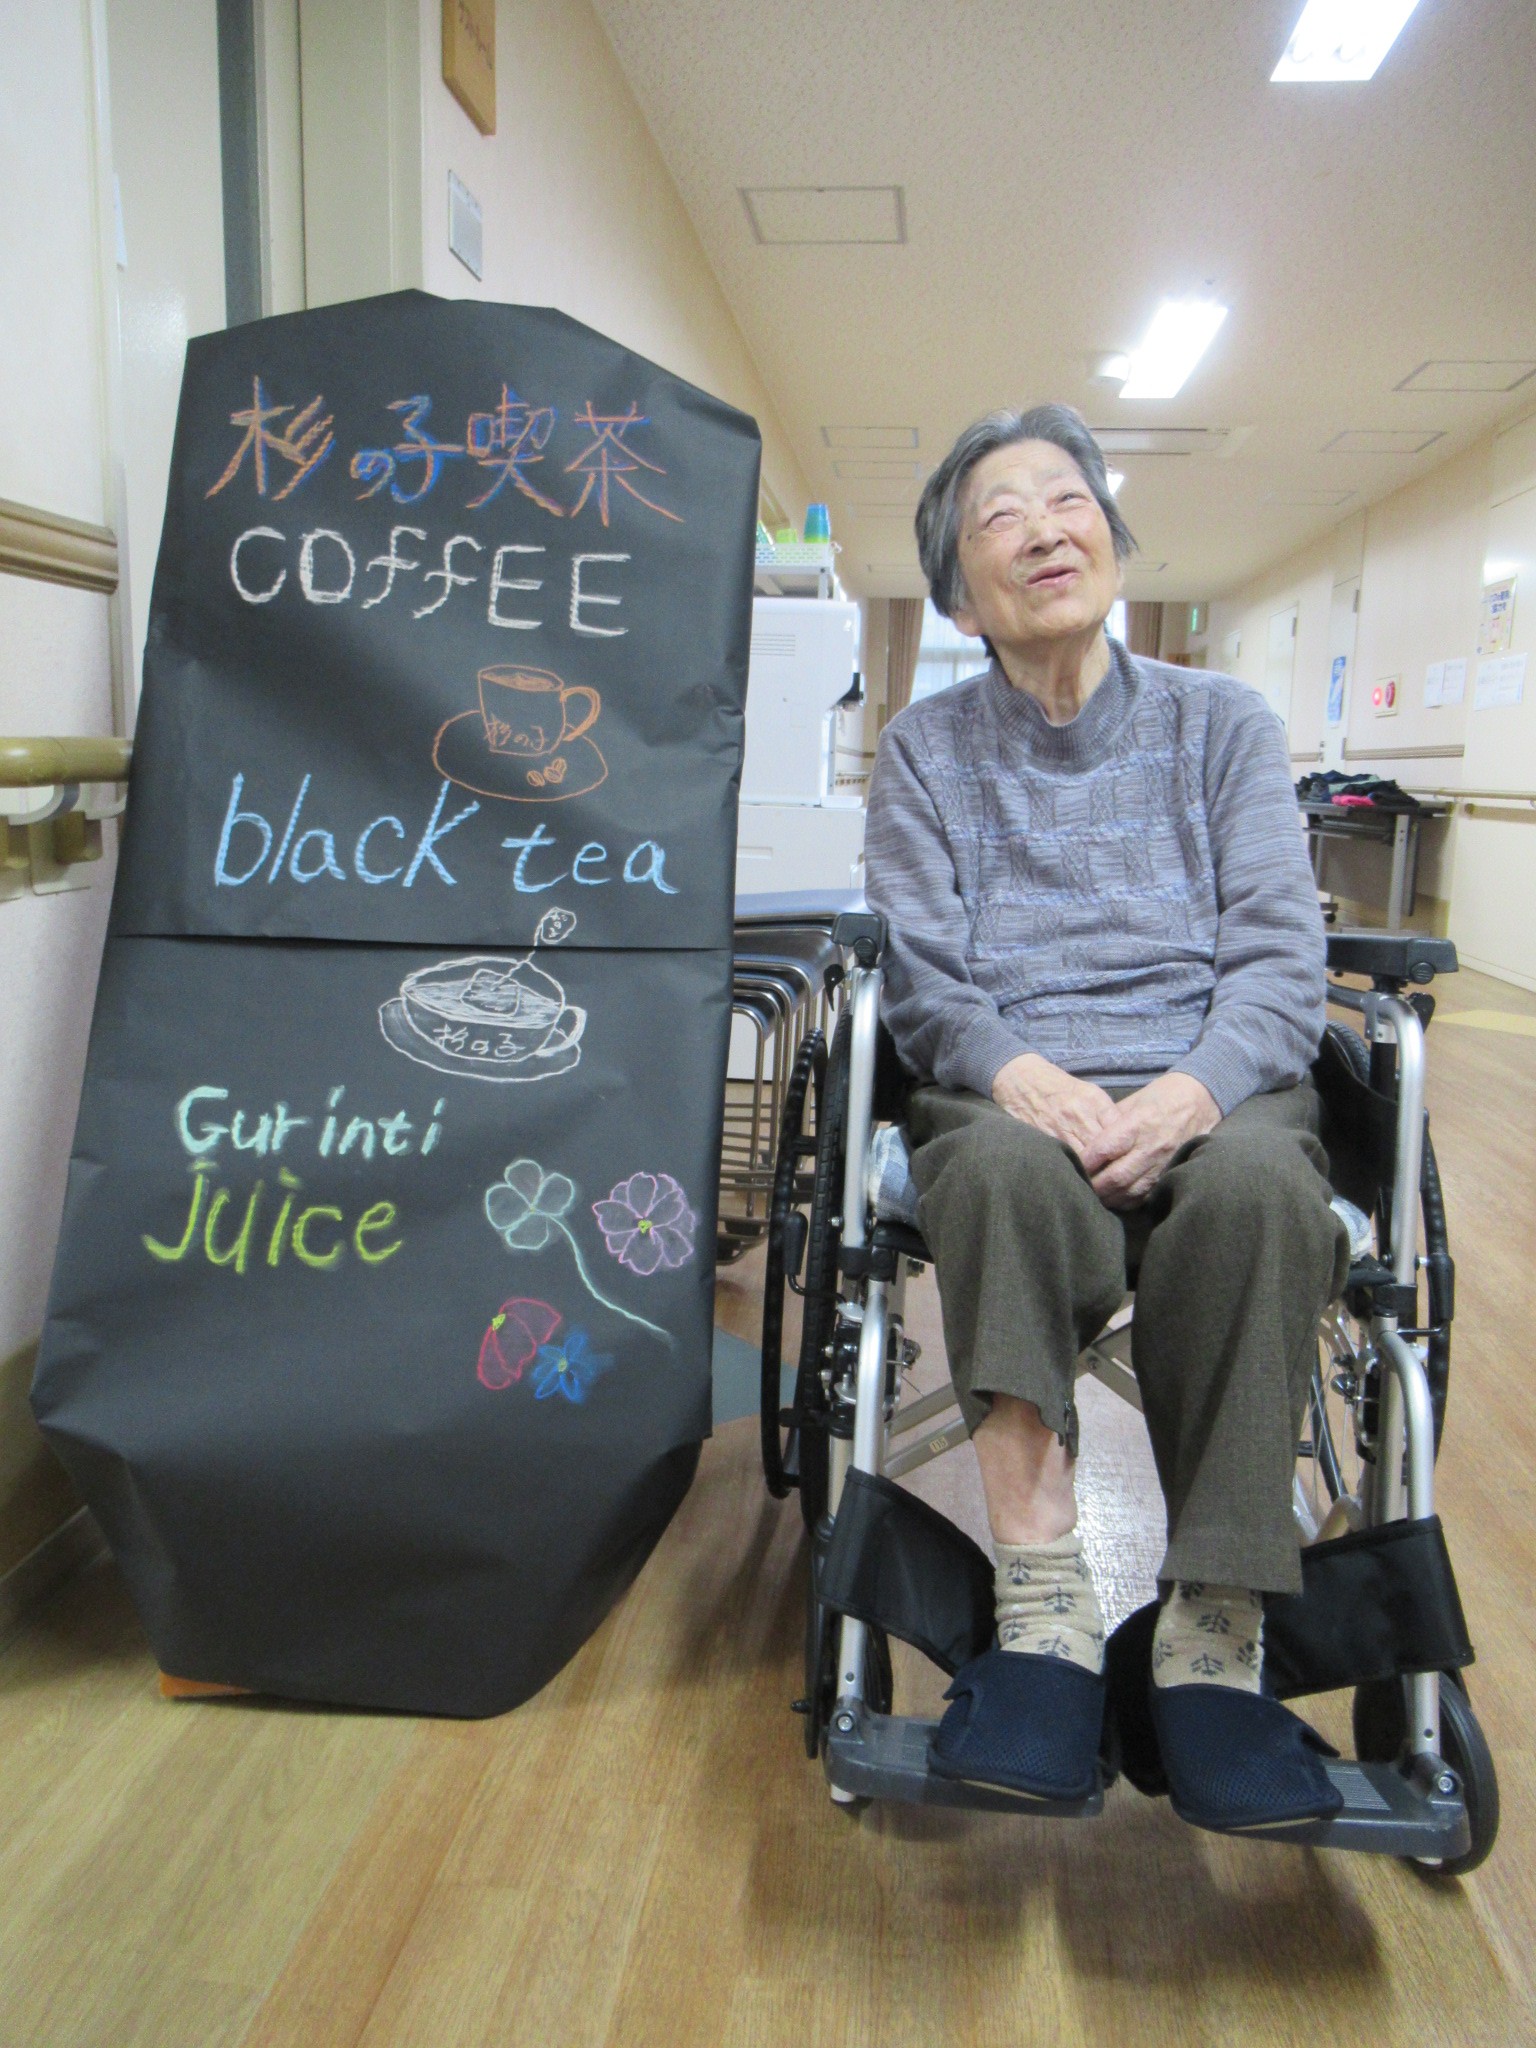 杉の子喫茶
COffEE
杉の子
black tea
杉の子
Gurinti
Juice